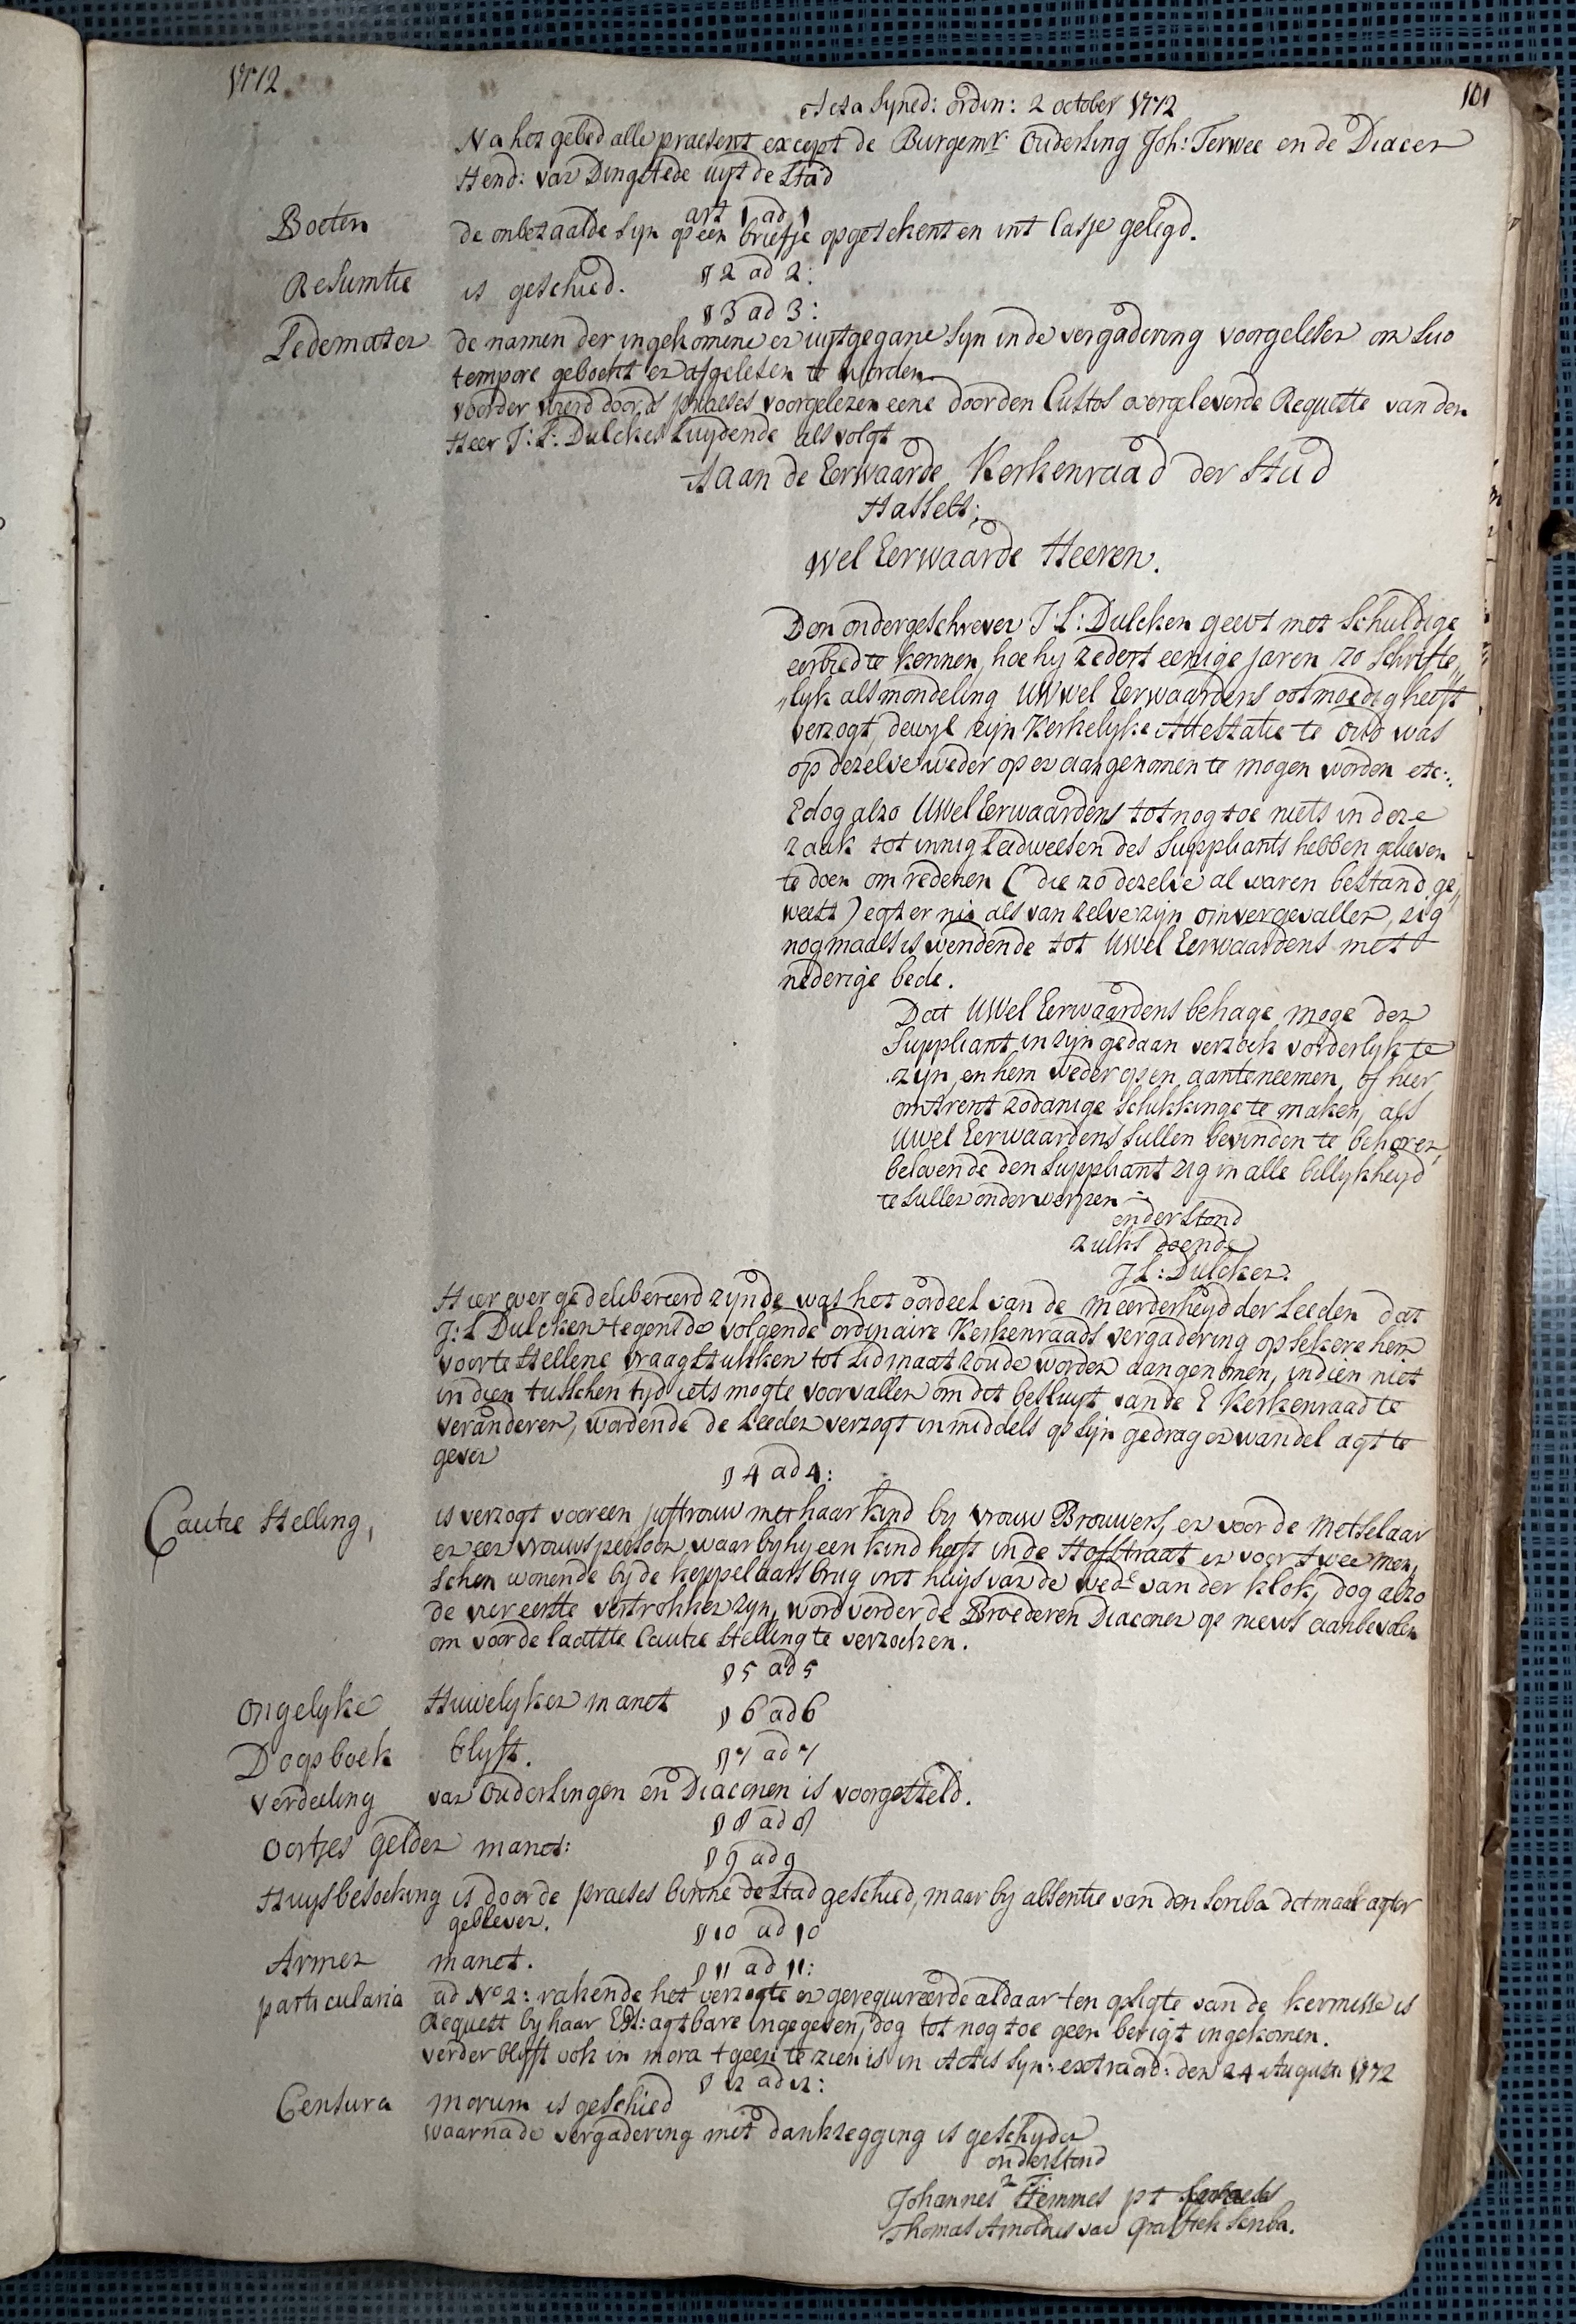 1772
101
Acta Syned: ordin: 2 october 1772
Na het gebed alle praesent except de Burgemr Ouderling Joh: Terwee en de Diacen
Hend: van Dingstede uijt de Stad
art 1 ad 1
Boeten de onbetaalde sijn op een briefje opgetekent en int Casje gelegd.
§ 2 ad 2:
Resumtie is geschied.
§ 3 ad 3:
Ledematen de namen der ingekomene en uijtgegane sijn in de vergadering voorgelesen om suo
tempore geboekt en afgelesen te worden.
voorder werd door ds praeses voorgelezen eene door den Custos overgeleverde Requeste van den
Heer J: L: Dulcken Luijdende als volgt
Aaan de Eerwaarde Kerkenraad der Stad
Hasselt;
Wel Eerwaarde Heeren.
Den ondergeschreven J: L: Dulcken geevt met schuldige
eerbied te kennen, hoe hy zedert eenige jaren zo schrifte„
„lyk als mondeling UWwel Eerwaardens ootmoedig heeft
verzogt, dewyl zijn Kerkelyke Attestatie te oud was
op dezelve weder op en aangenomen te mogen worden etc:.
Edog alzo UWel Eerwaardens tot nog toe niets in deze
zaak tot innig leedweesen des Suppliants hebben gelieven
te doen om redenen (die zo dezelve al waren bestand ge„
weest) egter nie als van zelve zijn omvergevallen, zig
nogmaals is wendende tot UWel Eerwaardens met
nederige bede.
Dat UWel Eerwaardens behage moge den
Suppliant in zijn gedaan verzoek vorderlyk te
zijn, en hem weder op en aanteneemen, of hier
omtrent zodanige schikkinge te maken, als
UWel Eerwaardens sullen bevinden te behoren,
belovende den Suppliant zig in alle billykheyd
te sullen onderwerpen
onderstond
zulks doende
J L: Dulcken.
Hier over gedelibereerd zijnde was het oordeel van de meerderheyd der Leeden dat
J: L Dulcken tegens de volgende ordinaire Kerkenraads vergadering op sekere hem
voor te stellene vraagstukken tot Lidmaat zoude worden aangenomen, indien niet
in dien tusschen tyd iets mogte voorvallen om dit besluyt van de E Kerkenraad te
veranderen, wordende de Leeden verzogt inmiddels op sijn gedrag en wandel agt te
geven
§ 4 ad 4:
Cautie stelling, is verzogt voor een juffrouw met haar kind by vrouw Brouwers, en voor de metselaar
en een vrouwspersoon, waar by hy een kind heeft in de Hofstraat en voor twee men„
schen wonende by de keppelaars brug int huijs van de wede van der klok, dog alzo
de vier eerste vertrokken zijn, word verder de Broederen Diaconen op nieuws aanbevolen
om voor de laatste Cautie stelling te verzoeken.
§ 5 ad 5
Ongelyke Huwelyken manet
§ 6 ad 6
Dogsboek blyft.
§ 7 ad 7
verdeeling van Ouderlingen en Diaconen is voorgesteld.
§ 8 ad 8
Oortjes gelden manet:
§ 9 ad 9
Huysbesoeking is door de praeses binne de stad geschied, maar by absentie van den scriba ditmaal agter
gebleven.
§ 10 ad 10
Armen manet.
§ 11 ad 11:
particularia ad No 2: rakende het verzogte en gerequireerde aldaar ten opsigte van de kermisse is
Request by haar Ed: agtbare ingegeven, dog tot nog toe geen berigt ingekomen.
verder blyft ook in mora t geen te zien is in Actis Syn: extraord: den 24 Augusti 1772
§ 12 ad 12:
Censura morum is geschied
waarna de vergadering met dankzegging is gescheyden
onderstond
Johannes Temmes pt
Thomas Arnoldus van Scriba.